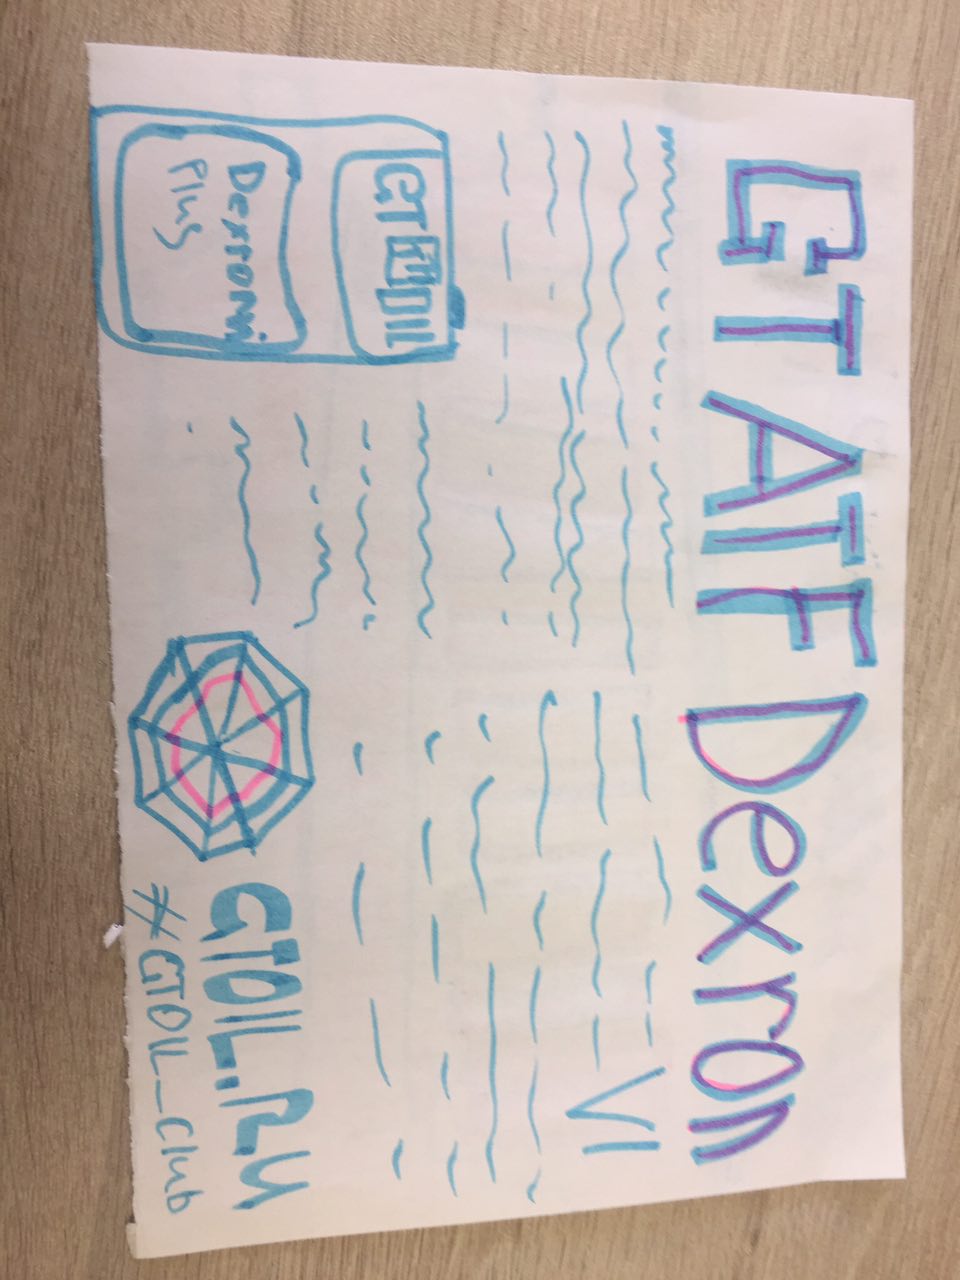 GT ATF Dexron
VI
GT Oil
Dexron
Plus
GTOIL.RU
#GTOIL_Club